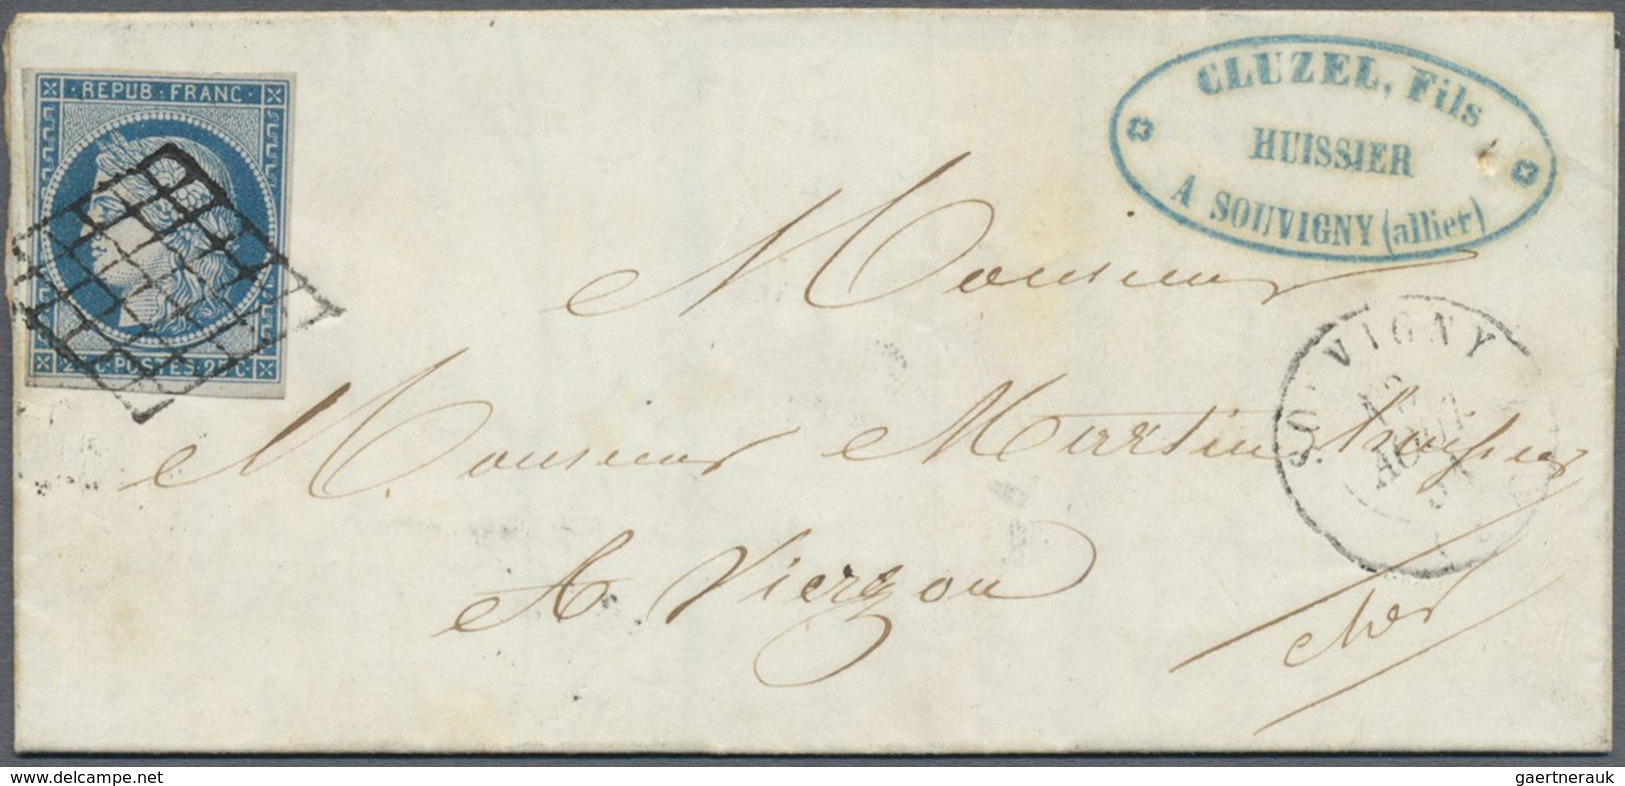 · REPUB · FRANC ·
25 C · POSTES · 25 C ·
CLUZEL, Fils
HUISSIER
A SOUVIGNY (allier)
Monsieur
SOUVIGNY
AOUT
51
Monsieur Martin
A Vierzon
cher
www.delcampe.net
gaertnerauk